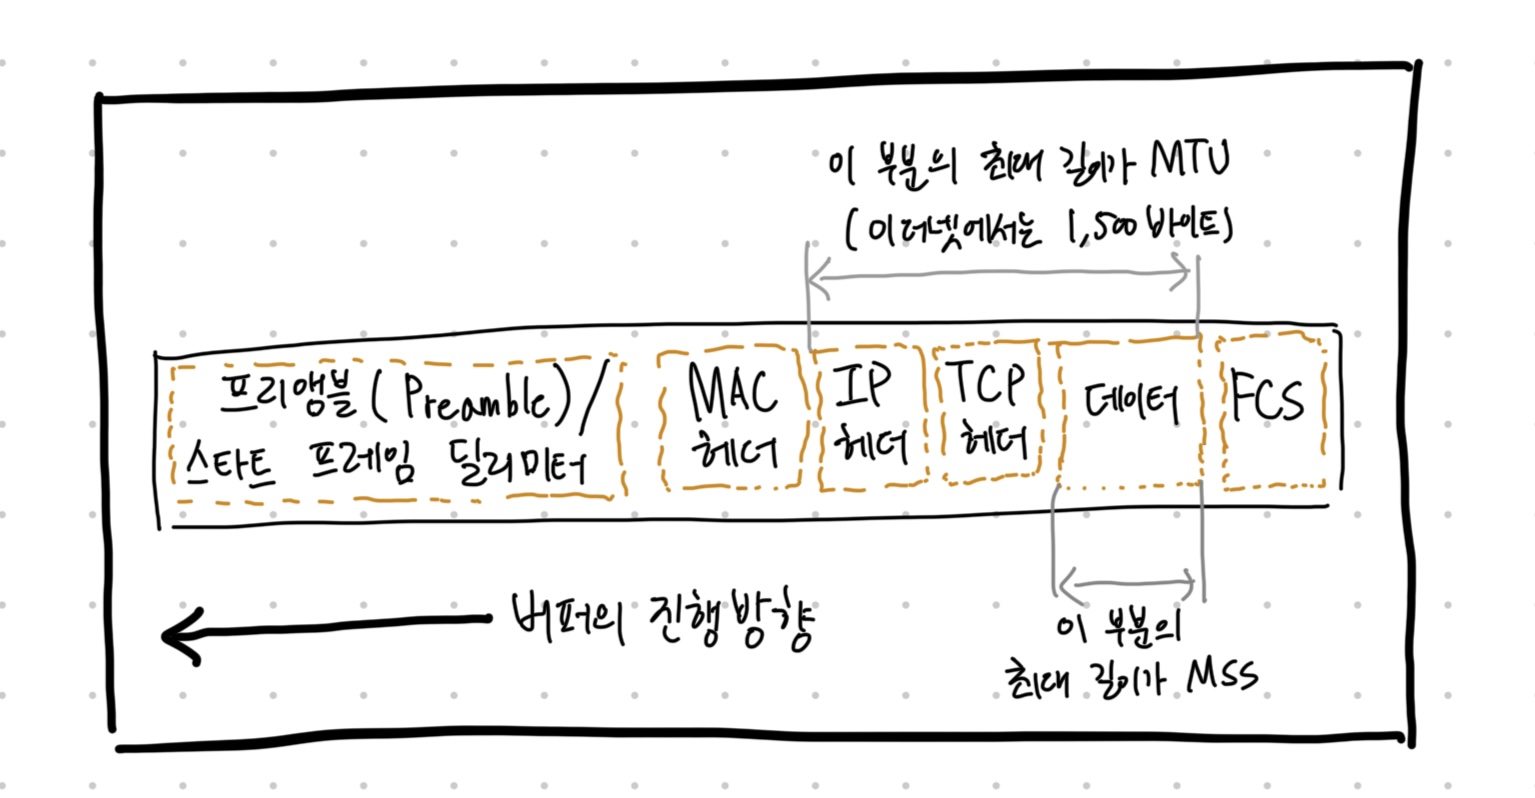 이 부분의 최대 길이가 MTU
(이더넷에서는 1,500바이트)
프리앰블(Preamble)/
스타트 프레임 딜리미터
MAC
헤더
IP
헤더
TCP
헤더
데이터
FCS
버퍼의 진행방향
이 부분의
최대 길이가 MSS